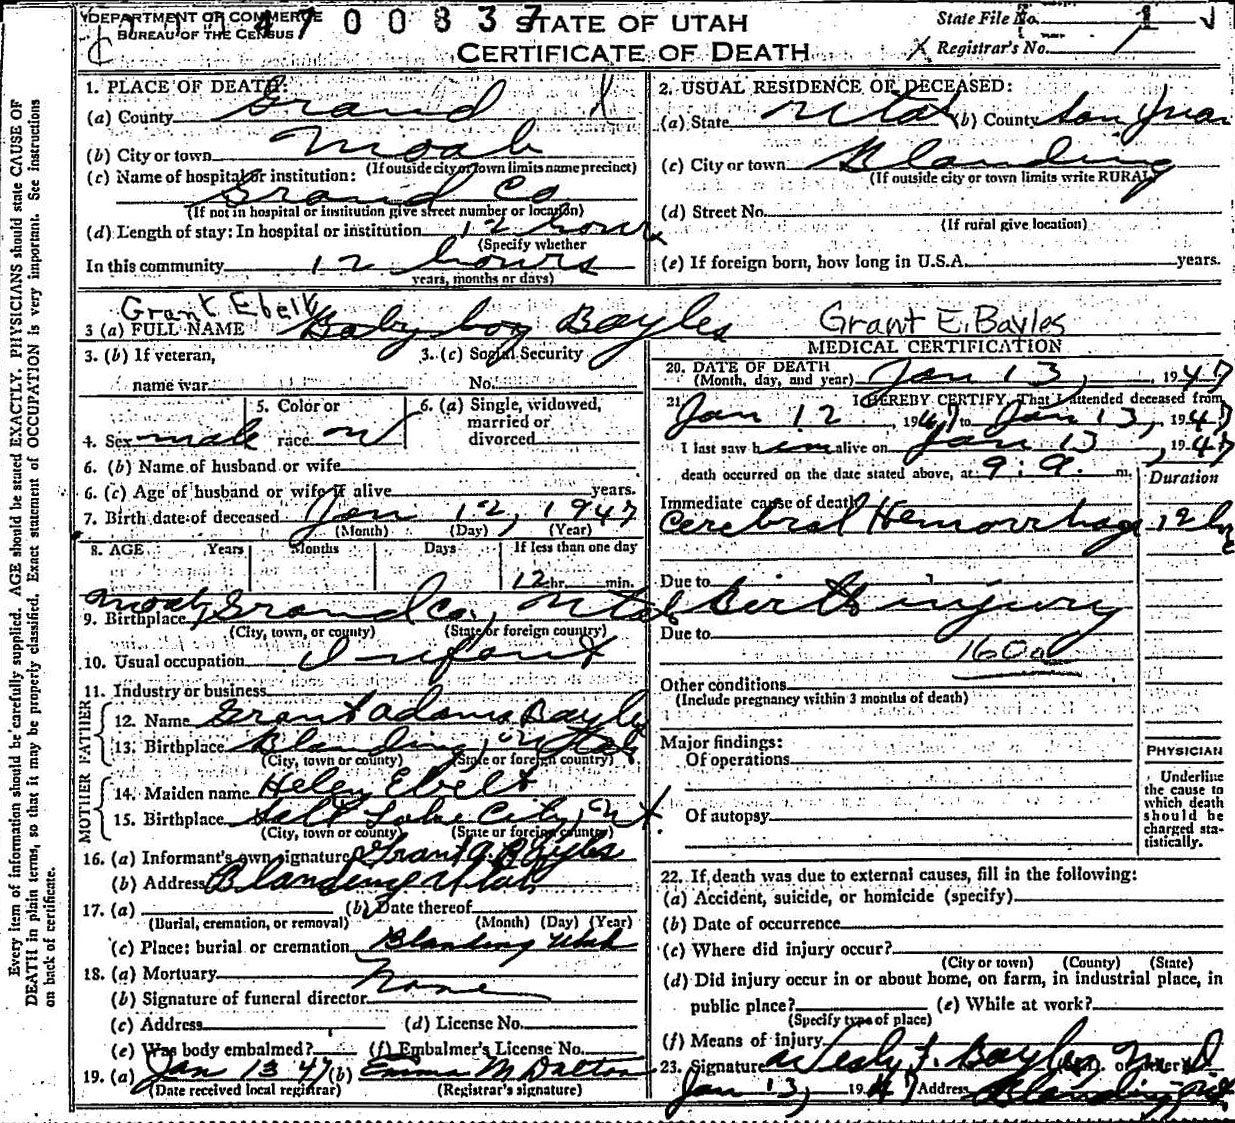 DEPARTMENT OF COMMERCE
BUREAU OF THE CENSUS
4700837
STATE OF UTAH
CERTIFICATE OF DEATH
State File No. 1
Registrar's No. 1
Every item of information should be carefully supplied. AGE should be stated EXACTLY. PHYSICIANS should state CAUSE OF
DEATH in plain terms, so that it may be properly classified. Exact statement of OCCUPATION is very important. See instructions
on back of certificate.
1. PLACE OF DEATH:
(a) County Grand
(b) City or town Moab
(If outside city or town limits name precinct)
(c) Name of hospital or institution:
Grand Co
(If not in hospital or institution give street number or location)
(d) Length of stay: In hospital or institution 12 hours
(Specify whether
In this community 12 hours
years, months or days)
2. USUAL RESIDENCE OF DECEASED:
(a) State Utah (b) County San Juan
(c) City or town Blanding
(If outside city or town limits write RURAL)
(d) Street No.
(If rural give location)
(e) If foreign born, how long in U.S.A. years.
Grant Ebelt
3 (a) FULL NAME Baby boy Bayles Grant E. Bayles
3. (b) If veteran,
name war
3. (c) Social Security
No.
4. Sex male
5. Color or
race W
6. (a) Single, widowed,
married or
divorced
6. (b) Name of husband or wife
6. (c) Age of husband or wife if alive years.
7. Birth date of deceased Jan 12, 1947
(Month) (Day) (Year)
8. AGE Years Months Days If less than one day
12 hr. min.
9. Birthplace Moab, Grand Co., Utah
(City, town, or county) (State or foreign country)
10. Usual occupation Infant
11. Industry or business
FATHER
12. Name Grant Adams Bayles
13. Birthplace Blanding, Utah
(City, town or county) (State or foreign country)
MOTHER
14. Maiden name Helen Ebelt
15. Birthplace Salt Lake City, Ut.
(City, town or county) (State or foreign country)
16. (a) Informant's own signature Grant A. Bayles
(b) Address Blanding Utah
17. (a) (b) Date thereof
(Burial, cremation, or removal) (Month) (Day) (Year)
(c) Place: burial or cremation Blanding Utah
18. (a) Mortuary None
(b) Signature of funeral director
(c) Address (d) License No.
(e) Was body embalmed? (f) Embalmer's License No.
19. (a) Jan 13 47 (b) Emma M Dalton
(Date received local registrar) (Registrar's signature)
MEDICAL CERTIFICATION
20. DATE OF DEATH
(Month, day, and year) Jan 13, 1947
21. I HEREBY CERTIFY, That I attended deceased from
Jan 12, 1947 to Jan 13, 1947
I last saw him alive on Jan 13, 1947
death occurred on the date stated above, at 9: a. m.
Duration
Immediate cause of death
Cerebral Hemorrhage 12 hrs
Due to
Birth injury
Due to
160a
Other conditions
(Include pregnancy within 3 months of death)
Major findings:
Of operations
Of autopsy
PHYSICIAN
Underline
the cause to
which death
should be
charged sta-
tistically.
22. If death was due to external causes, fill in the following:
(a) Accident, suicide, or homicide (specify)
(b) Date of occurrence
(c) Where did injury occur?
(City or town) (County) (State)
(d) Did injury occur in or about home, on farm, in industrial place, in
public place? (e) While at work?
(Specify type of place)
(f) Means of injury
23. Signature Wesly F. Bayles, M D
Jan 13, 1947 Address Blanding, Ut.